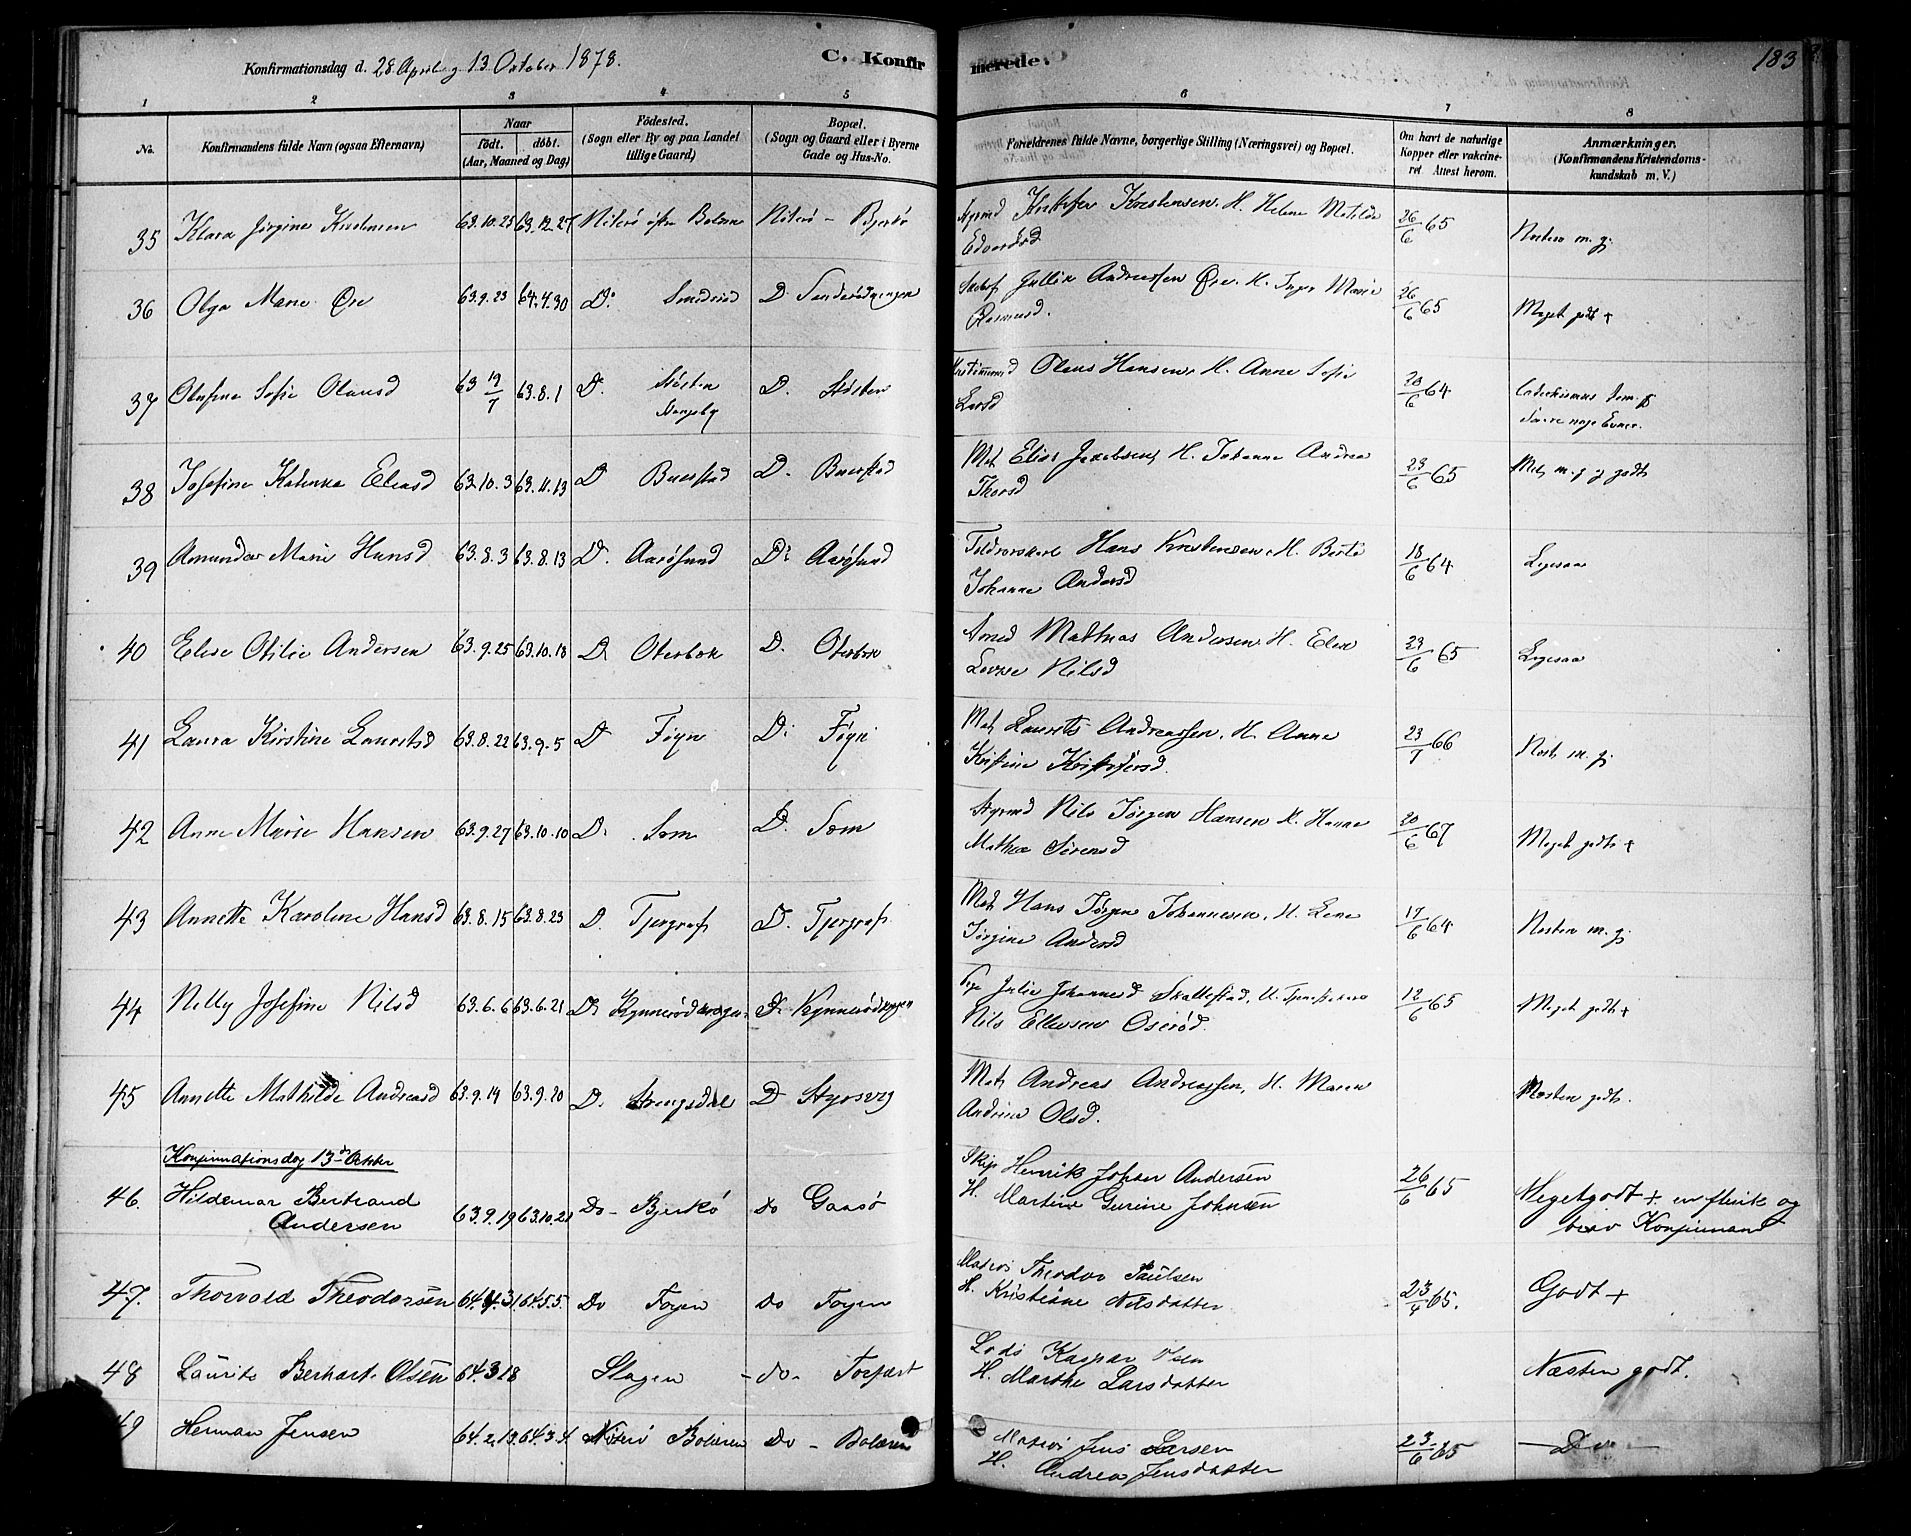 Konfirmationsdag d. 28 April og 13 Oktober 1878.
C. Konfir
merede.
183
1 2 3 4 5 6 7 8
No.
Konfirmandens fulde Navn (ogsaa Efternavn)
Naar
födt. döbt.
(Aar, Maaned og Dag)
Födested.
(Sogn eller By og paa Landet
tillige Gaard)
Bopæl.
(Sogn og Gaard eller i Byerne
Gade og Hus-No.
Forældrenes fulde Navne, borgerlige Stilling (Næringsvei) og Bopæl.
Om havt de naturlige
Kopper eller vakcine-
ret Attest herom.
Anmærkninger.
(Konfirmandens Kristendoms-
kundskab m. V.)
35 Klara Jörgine Kristensen 63.10.25 63.12.27 Nöterö Nöterö - Bjerkö Styrmd Kristensen. H. Helene Matilde 26/6 65 m. g.
Edvardsd
36 Olga Marie Öre 63.9.23 64.4.30 Do. D. Andreassen Öre. H. Inger Marie 26/6 65 Meget godt +
Rasmusd.
37 Olufine Sofie Olausd 63 19/7 63.8.1 D. Stösten D. Stösten Olaus Hansen, H. Anne Sofie 20/6 64
Larsd
38 Josefine Katinka Eliasd 63.10.3 63.11.13 D Buerstad D. Buerstad Mat. Elias Jakobsen, H. Johanne Andrea 23/6 65 m. g. g godt
Thorsd
39 Marie Hansd 63.8.3 63.8.13 D. Aarösund Do Aarösund Hans Kristensen. H. Berte 18/6 64 Ligesaa
Johanne Andersd
40 Elise Otilie Andersen 63.9.25 63.10.18 D Oterbek D. Oterbek Mathias Andersen. H. Elen 23/6 65 Ligesaa
Lovise Nilsd
41 Laura Kirstine Lauritsd 63.8.22 63.9.5 D Föyn D. Föyn Mat. Laurits Andreassen. H. Anne 23/7 66 m. g.
Kristine Kristofersd.
42 Anne Marie Hansen 63.9.27 63.10.10 D. Sem D. Sem Styrmd Nils Jörgen Hansen H. Hanne 20/6 67 Meget godt +
Mathea Sörensd
43 Annette Karoline Hansd 63.8.15 63.8.23 D. D. Mat. Hans Jörgen Johannesen, H. Lene 17/6 64 Næsten m. g.
Jörgine Andersd
44 Nelly Josefine Nilsd 63.6.6 63.6.21 D. D. Pige Julie Johannesd Skallestad, U. 12/6 65 Meget godt +
Nils Ellevsen Oserød.
45 Annette Mathilde Andreasd 63.9.14 63.9.20 D. D Styrsvig Mat. Andreas Andreassen, H. Maren Næsten godt.
Andrine Olsd.
Konfirmationsdag 13de Oktober
46. Hildemar Bertrand 63.9.19 63.10.21 Do- Bjerkö do Gaasö Skip Henrik Johan Andersen 26/6 65 Megetgodt + en flink og
Andersen H. Martine Gurine Johnsen brav Konfirmant
47. Thorvald Theodorsen 64.4.3 64.5.5. Do Foyen do Foyen Matros Theodor Paulsen 23/4 65. Godt +
H. Kristiane Nilsdatter
48 Laurits Berhart Olsen 64.3.18 Slagen - do - Torfæst Lods Kaspar Olsen Næsten godt.
H. Marthe Larsdatter
49 Herman Jensen 64.2.13 64.3.4. Nöterö Bolæren Do - Bolæren Matros Jens Larsen 23/6 65 - Do -
H. Andrea Jensdatter